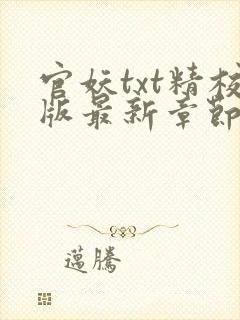 官妖txt精校
版最新章節
邁騰